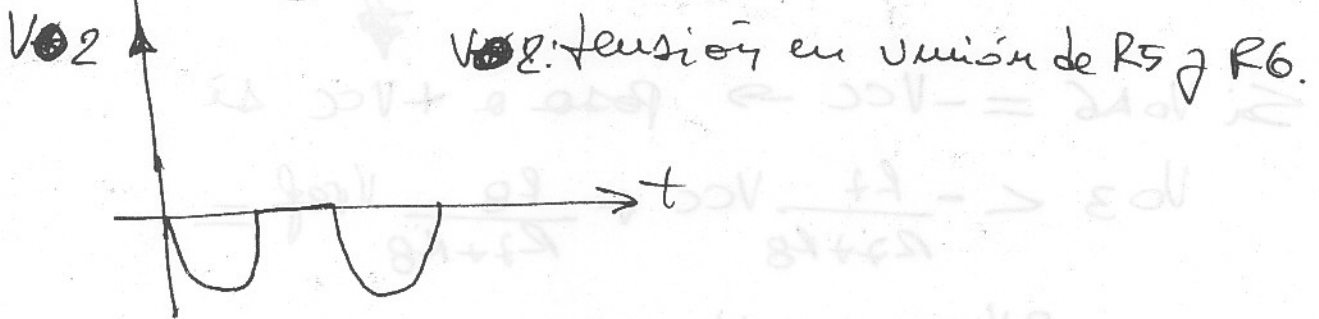 Vo2
Vo2: tensión en unión de R5 y R6.
t